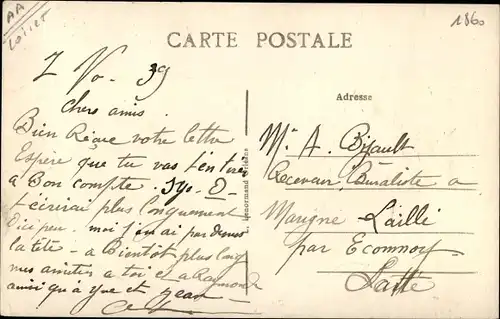 AA
Loiret
1860
CARTE POSTALE
7 Vo - 39
Adresse
chers amis.
Bien Reçue votre lettre
Espère que tu vas t'en tirer
a Bon compte.
t'écrirai plus longuement
D'ici peu - moi j'en ai par dessus
la tête - a Bientot plus long
mes amitiés a toi et a Raymonde
ainsi qu'à Yve et Jean
L. Lenormand
Mr A. Bijault
Receveur Buraliste a
Marigné Lailli
par Ecommoy
Sarthe